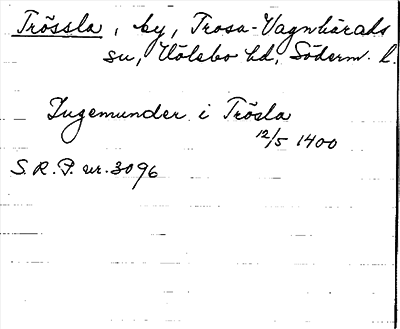 Trössla, by, Trosa-Vagnhärads
sn, Hölebo hd, Söderm. l.
Ingemunder i Trösla
12/5 1400
S.R.P. nr. 3096